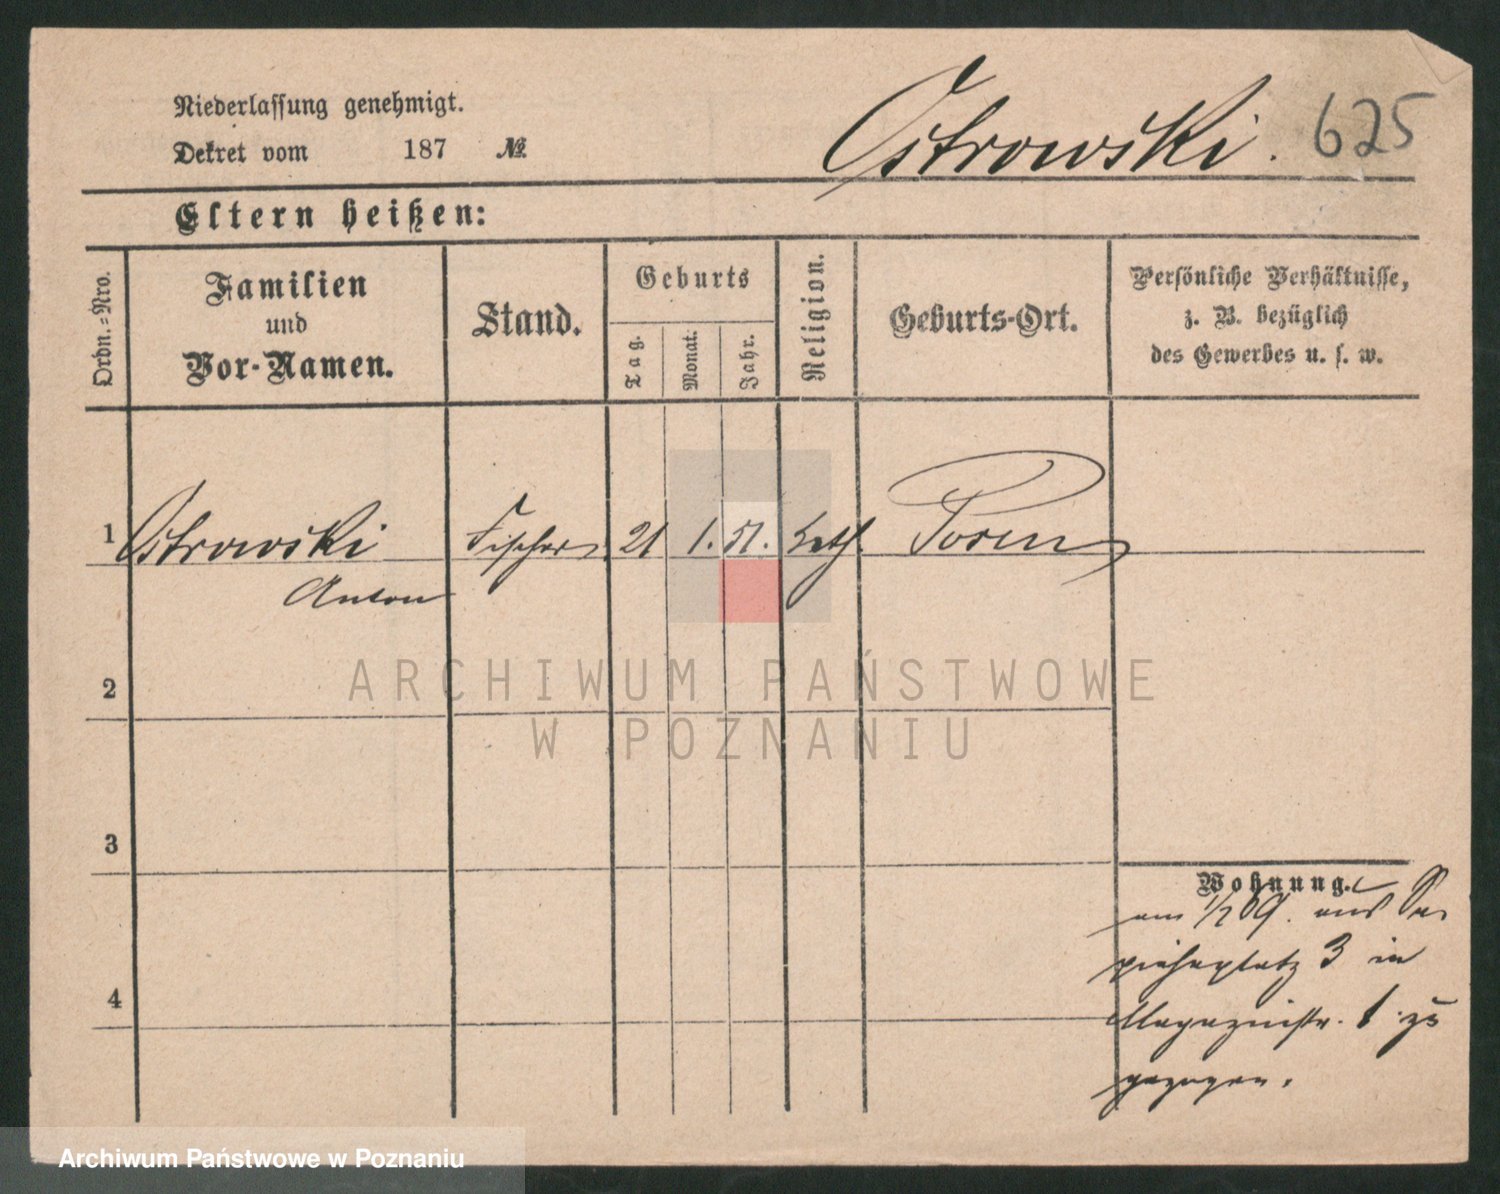 Niederlassung genehmigt.
Dekret vom 187 №
Ostrowski. 625
Eltern heißen:
Ordn.=Nro.
Familien
und
Vor-Namen.
Stand.
Geburts
Tag.
Monat.
Jahr.
Religion.
Geburts-Ort.
Persönliche Verhältnisse,
z. B. bezüglich
des Gewerbes u. s. w.
1 Ostrowski Fischer 21 1. 51. kath. Posen
Anton
2
3
4
Wohnung.
am 1/2 89. aus Sa
piehaplatz 3 in
Magazinstr. 1 zu
gezogen.
ARCHIWUM PAŃSTWOWE
W POZNANIU
Archiwum Państwowe w Poznaniu